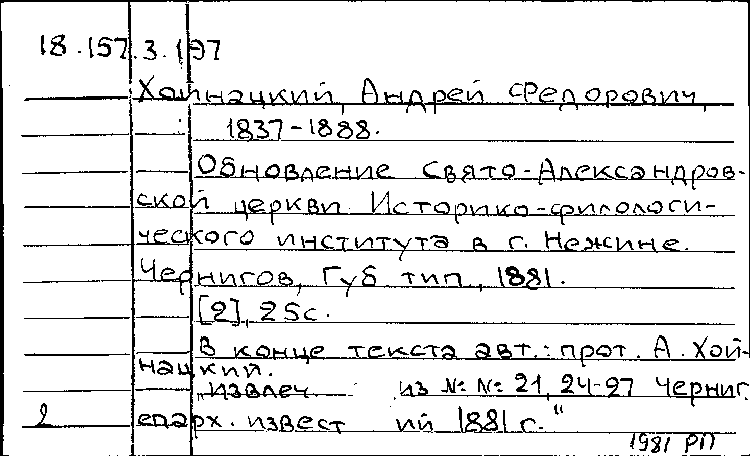 18.157.3.197
Хойнацкий, Андрей Федорович,
1837-1888.
Обновление Свято-Александров-
ской церкви Историко-филологи-
ческого института в г. Нежине.
Чернигов, Губ тип., 1881.
[2], 25с.
В конце текста авт.: прот. А. Хой-
нацкий.
„Извлеч. из №№ 21, 24-27 Черниг.
2 епарх. извест ий 1881 г."
1981 РП